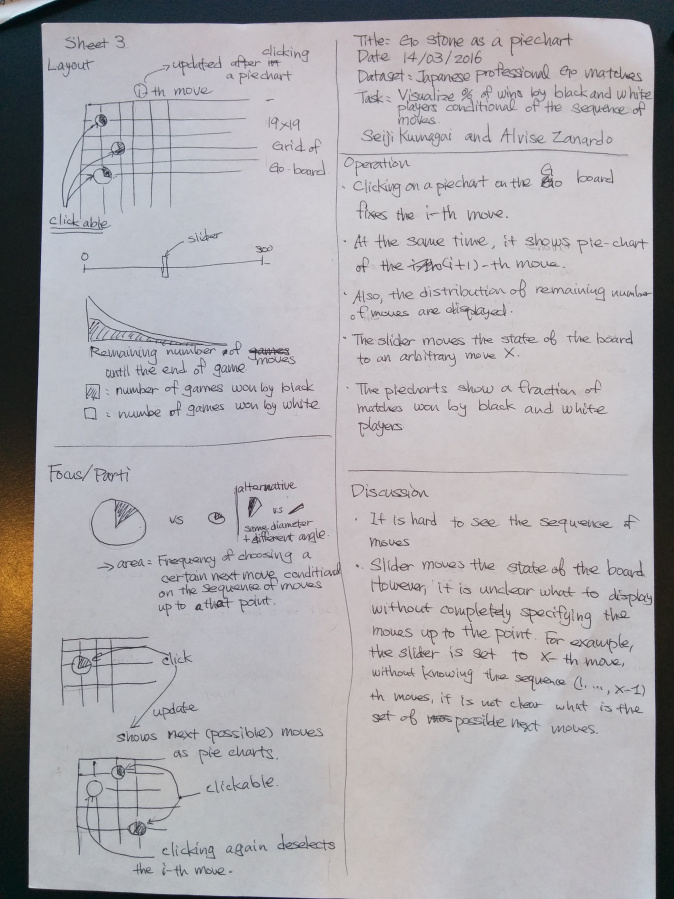 Sheet 3
Layout
updated after clicking
a piechart
i th move
19×19
Grid of
Go-board
clickable
slider
0
300
Remaining number of moves
until the end of game
: number of games won by black
: numbe of games won by white
Focus/Parti
vs
alternative
vs
same diameter
+ different angle.
→ area = Frequency of choosing a
certain next move conditional
on the sequence of moves
up to that point.
click
update
shows next (possible) moves
as pie charts.
clickable.
clicking again deselects
the i-th move.
Title: Go stone as a piechart
Date 14/03/2016
Dataset: Japanese professional Go matches
Task: Visualize % of wins by black and white
players conditional of the sequence of
moves.
Seiji Kumagai and Alvise Zanardo
Operation
· Clicking on a piechart on the Go board
fixes the i-th move.
· At the same time, it shows pie-chart
of the (i+1)-th move.
· Also, the distribution of remaining number
of moves are displayed.
· The slider moves the state of the board
to an arbitrary move X.
· The piecharts show a fraction of
matches won by black and white
players
Discussion
· It is hard to see the sequence of
moves
· Slider moves the state of the board
However, it is unclear what to display
without completely specifying the
moves up to the point. For example,
the slider is set to X-th move,
without knowing the sequence (1, ..., X-1)
th moves, it is not clear what is the
set of possible next moves.